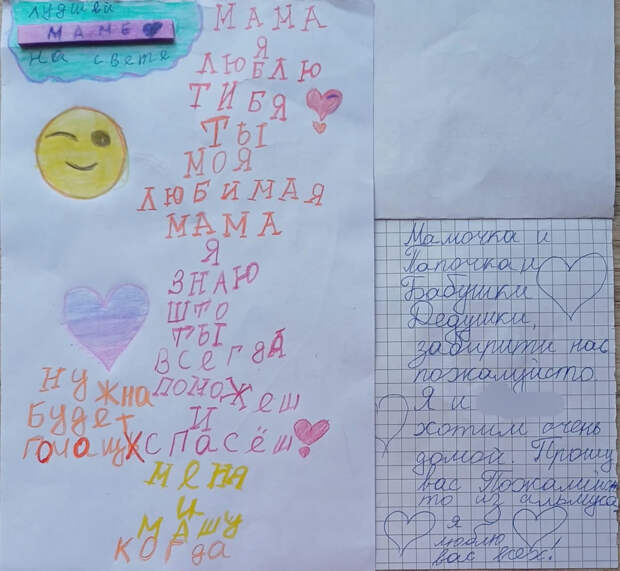 лудшей
МАМЕ
на свете
МАМА
Я
ЛЮБЛЮ
ТИБЯ
ТЫ
МОЯ
ЛЮБИМАЯ
МАМА
Я
ЗНАЮ
ШТО
ТЫ
ВСЕГДА
ПОМОЖЕШ
И
СПАСЁШ
МЕНЯ
И
МАШУ
КОГДА
НУЖНА
БУДЕТ
Мамочка и
Папочка и
Бабушки
Дедушки,
забирити нас
пожалуйсто.
Я и
хотим очень
домой. Прошу
вас
то из
Я
люблю
вас всех!